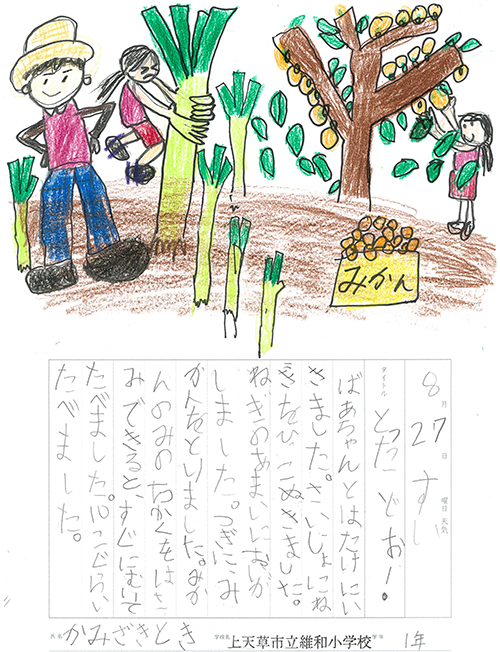 みかん
8月27日 曜日 天気
タイトル とったどおー！
ばあちゃんとはたけにい
きました。さいしょにね
ぎをひっこぬきました。
ねぎのあまいにおいが
しました。つぎにみ
かんをとりました。みか
んのみのちかくをはさ
みできると、すぐにむいて
たべました。10こぐらい
たべました。
氏名 かみざきとき 学校名 上天草市立維和小学校 学年 1年